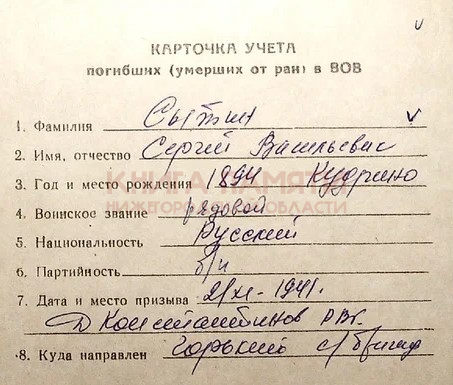 КАРТОЧКА УЧЕТА
погибших (умерших от ран) в ВОВ
1. Фамилия Сытин
2. Имя, отчество Сергей Васильевич
3. Год и место рождения 1894 Кудрино
КНИГА ПАМЯТИ
НИЖЕГОРОДСКОЙ ОБЛАСТИ
4. Воинское звание рядовой
5. Национальность Русский
6. Партийность б/п
7. Дата и место призыва 21/XI-1941.
Д Константинов РВк.
8. Куда направлен Горький с/бригад